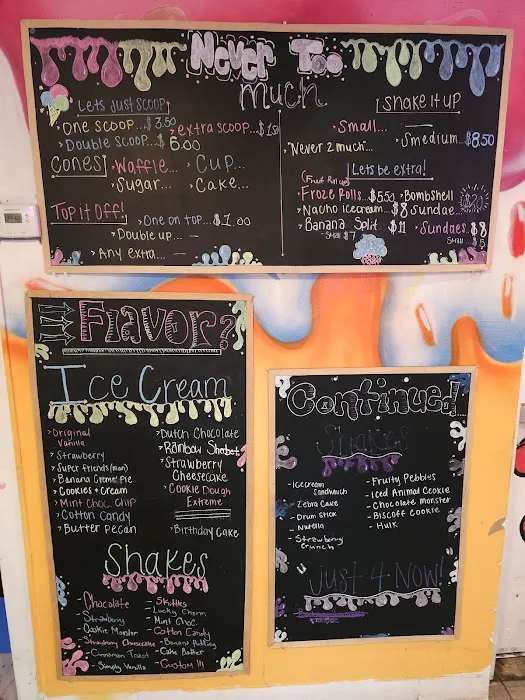 Never Too
Much
Lets Just Scoop
One scoop...$3.50
Extra scoop...$1.50
Double Scoop...$6.00
CONES!
Waffle...
Cup...
Sugar...
Cake...
Top it Off!
One on top...$1.00
Double up...
Any extra...
Shake it up
Small...
Smedium...$8.50
"Never 2 much"...
Lets be extra!
Froze Rolls...$5.50
Bombshell
Sundae...$20
Nacho icecream...$8
Banana Split $11
small $7
Sundaes..$8
Small $5
Flavor?
Ice Cream
Original
Vanilla
Strawberry
Super friends(man)
Banana Creme Pie
Cookies + Cream
Mint Choc. Chip
Cotton Candy
Butter Pecan
Dutch Chocolate
Rainbow Sherbet
Strawberry
Cheesecake
Cookie Dough
Extreme
Birthday Cake
Shakes
- Chocolate
- Strawberry
- Cookie Monster
- Strawberry Cheesecake
- Cinnamon Toast
- Simply Vanilla
- Skittles
- Lucky Charm
- Mint Choc
- Cotton Candy
- Banana Pudding
- Cake Batter
- Custom !!!
Continued...
Shakes
- Icecream
Sandwich
- Zebra Cake
- Drum Stick
- Nutella
- Strawberry
Crunch
- Fruity Pebbles
- Iced Animal Cookie
- Chocolate Monster
- Biscoff Cookie
- Hulk
Just 4 Now!